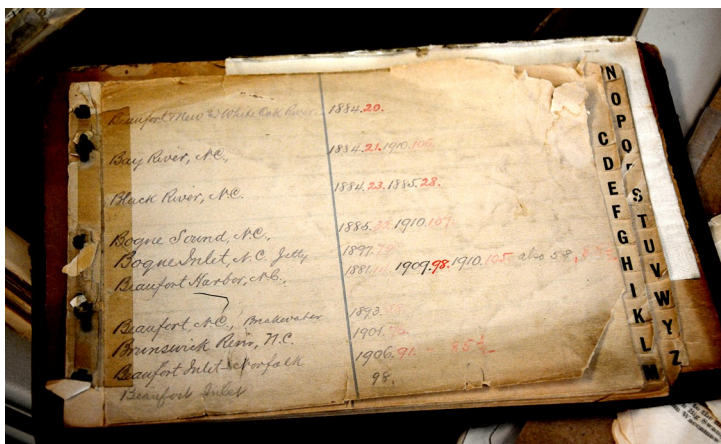 Beaufort New & White Oak River 1884.20.
Bay River, N.C., 1884.21.1910.106.
Black River, N.C. 1884.23.1885.28.
Bogue Sound, N.C., 1885. 1910.107.
Bogue Inlet, N.C. Jetty 1897.
Beaufort Harbor, N.C. 1881. 1909.98.1910.105 also 58,
Beaufort, N.C., Breakwater 1893.
Brunswick River, N.C. 1901.
Beaufort Inlet Norfolk 1906.91. - 85½
Beaufort Inlet 98.
C
D
E
F
G
H
I
K
L
M
N
O
P
Q
S
T
U
V
W
Y
Z